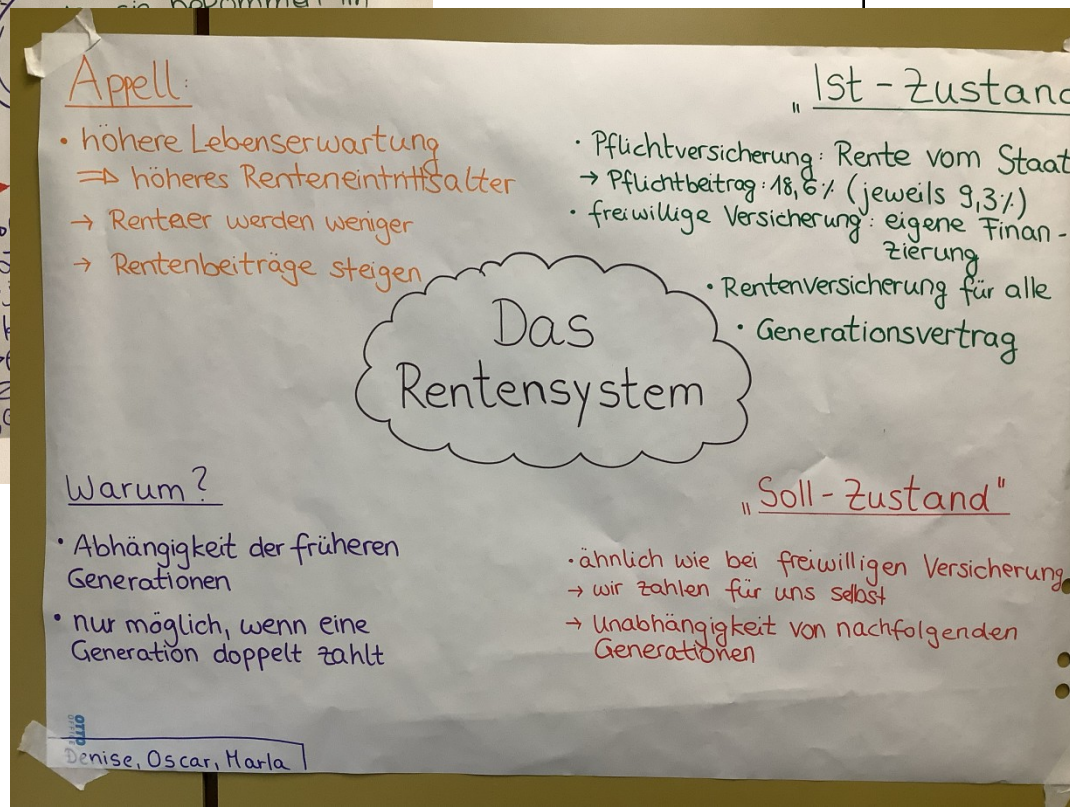 Appell:
• höhere Lebenserwartung
⇒ höheres Renteneintrittsalter
→ Rentner werden weniger
→ Rentenbeiträge steigen
„Ist-Zustand
• Pflichtversicherung: Rente vom Staat
→ Pflichtbeitrag: 18,6% (jeweils 9,3%)
• freiwillige Versicherung: eigene Finan-
zierung
• Rentenversicherung für alle
• Generationsvertrag
Das
Rentensystem
Warum?
• Abhängigkeit der früheren
Generationen
• nur möglich, wenn eine
Generation doppelt zahlt
„Soll-Zustand"
• ähnlich wie bei freiwilligen Versicherung
→ wir zahlen für uns selbst
→ Unabhängigkeit von nachfolgenden
Generationen
OTTO
Denise, Oscar, Marla